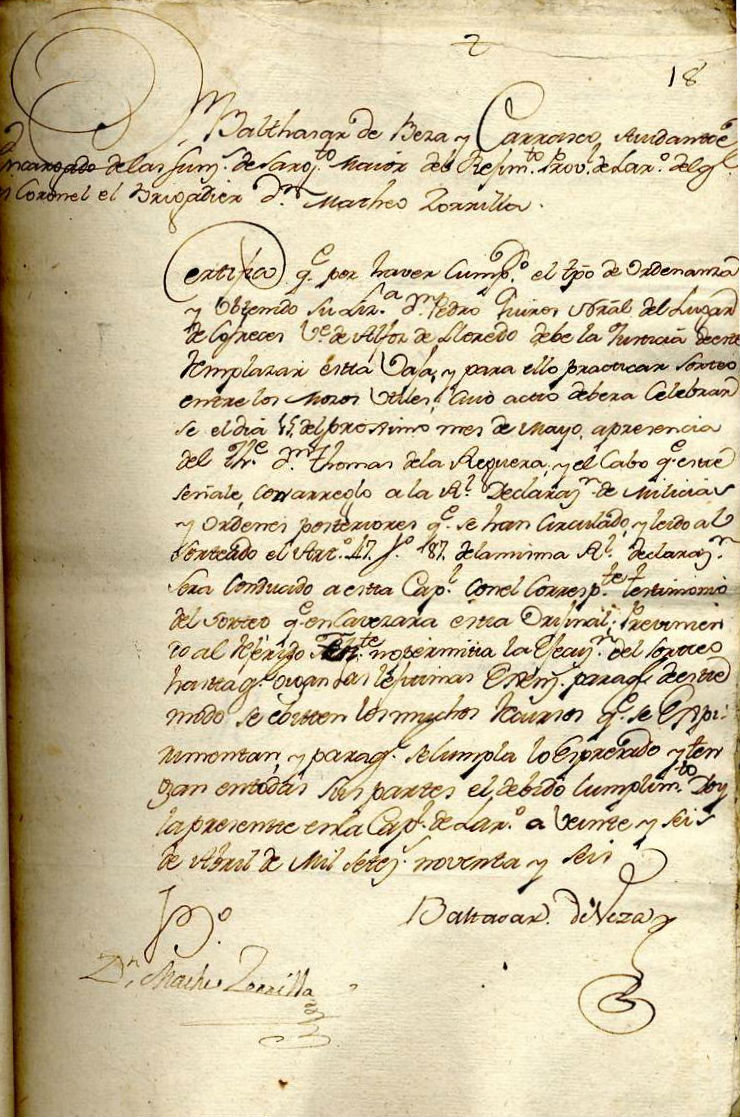 2
18
Balthasar de Beza y Carrasco, Aiudante
encargado de las fun.s de Sarg.to Maior del Regim.to Prov.l de Lar.o del q.e
es Coronel el Brigadier D.n Matheo Zorrilla.
Certifico q.e por haver Cump.o el tpo de Ordenanza
y Obtenido su Liz.a d.n Pedro Quiros Nral del Lugar
de Cofreces V.e de Alfoz de Lloredo debe la Justicia de este
Remplazar esta Vaja, y para ello practicar Sorteo
entre los Mozos Utiles, cuio acto debera Celebrar
se el dia 15 del proximo mes de Mayo, apresencia
del Th.e d.n Thomas de la Reguera, y el Cabo q.e este
señale, con arreglo a la R.l Declaraz.n de Milicias
y Ordenes posteriores q.e se han Circulado, y leido al
Sorteado el Art.o 47. f.o 187. de la misma R.l declaraz.n
sera Conducido a esta Cap.l con el Corresp.te testimonio
del Sorteo q.e encavezara esta Orijinal; Previnien
to al Referido The.te no permita la Ejecuz.n del Sorteo
hasta q.e oigan las lejitimas Exem.s para q.e de este
modo se eviten los muchos Recursos q.e se Expe
rimentan, y para q.e se Cumpla lo Expresado y ten
gan en todas sus partes el debido Cumplim.to Doy
la presente en la Cap.l de Lar.o a Veinte y Seis
de Abril de Mil Sete.s noventa y Seis
Baltasar de Veza y
V.o B.o
D.n Matheo Zorrilla